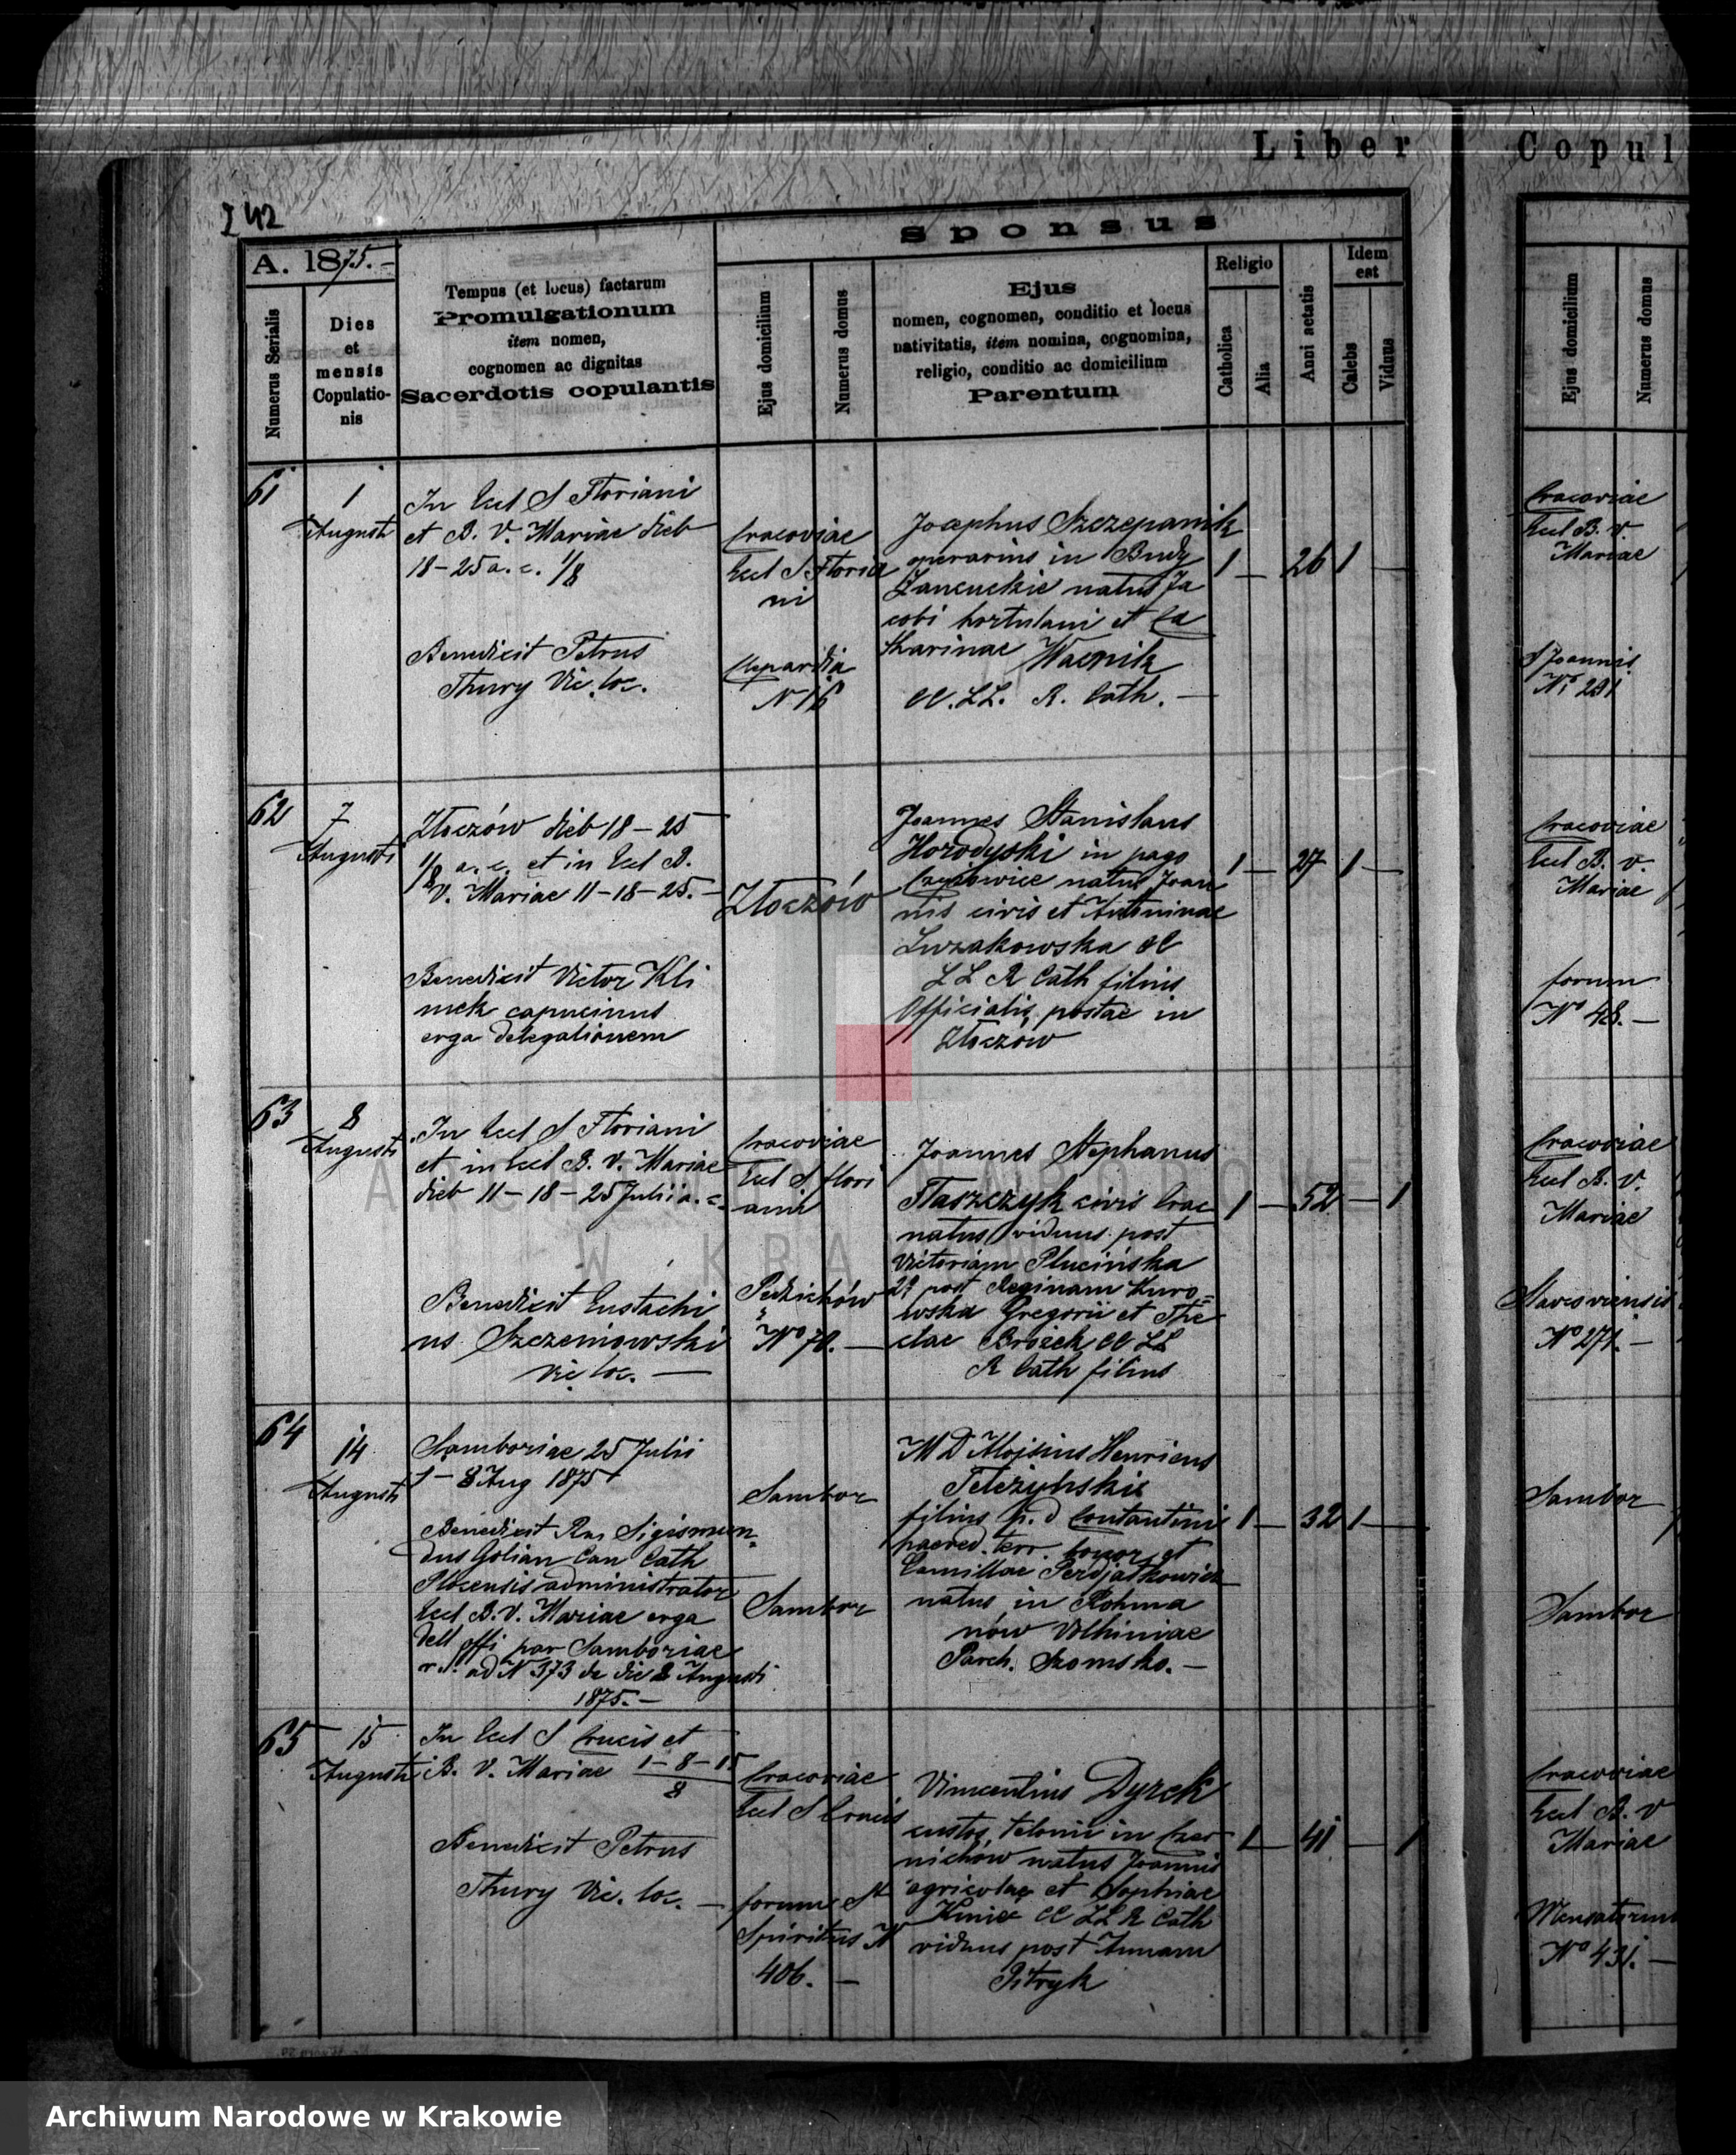 Liber
Copul
242
A. 1875.-
Sponsus
Numerus Serialis
Dies
et
mensis
Copulatio-
nis
Tempus (et locus) factarum
Promulgationum
item nomen,
cognomen ac dignitas
Sacerdotis copulantis
Ejus domicilium
Numerus domus
Ejus
nomen, cognomen, conditio et locus
nativitatis, item nomina, cognomina,
religio, conditio ac domicilium
Parentum
Religio
Catholica
Alia
Anni aetatis
Idem
est
Calebs
Viduus
Ejus domicilium
Numerus domus
61
1
Augusti
In Eccl S Floriani
et B. V. Mariae dieb
18-25 a. c. 1/8
Benedixit Petrus
Thury Vic. loc.
Cracoviae
Eccl S Floria
ni
Clepardia
N 16
Josephus Szczepanik
operarius in Budy
Lancuckie natus Ja
cobi hortulani et Ca
tharinae Wacnik
CC. LL. R. Cath. —
1 — 26 1 —
Cracoviae
Eccl B. V.
Mariae
S Joannis
No 291
62
7
Augusti
Złoczów dieb 18-25
1/8 a. c. et in Eccl B.
V. Mariae 11-18-25.-
Benedixit Victor Kli
mek capucinus
erga delegationem
Złoczów
Joannes Stanislaus
Horodyski in pago
natus Joan
nis civis et Antoninae
Lwzakowska CC
LL R Cath filius
Officialis postae in
Złoczów
1 — 27 1 —
Cracoviae
Eccl B. V.
Mariae
forum
No 48. —
63
8
Augusti
In Eccl S Floriani
et in Eccl B. V. Mariae
dieb 11-18-25 Julii a. c.
Benedixit Eustachi
us Szczeniowski
Vic loc. —
Cracoviae
Eccl S Flori
ani
Pędzichów
No 70. —
Joannes Stephanus
Staszczyk civis Crac
natus viduus post
Victoriam Plucińska
2o post Reginam Kuro=
wska Gregorii et The
clae Brożek CC LL
R Cath filius
1 — 52 — 1
Cracoviae
Eccl B. V.
Mariae
Slavcoviensis
No 271. —
64
14
Augusti
Samboriae 25 Julii
1-8 Aug 1875
Benedixit Rss Sigismun=
dus Golian Can Cath
Plocensis administrator
Eccl B. V. Mariae erga
dell offi par Samboriae
r. l. ad N 373 de die 8 Augusti
1875. —
Sambor
Sambor
M D Aloisius Henricus
Teleżyński
filius M. D Constantini
haered. terr. bonor et
Camillae Perdjatkowicz
natus in Rohma
nów Volhiniae
Parch. Szomsko. —
1 — 32 1 —
Sambor
Sambor
65
15
Augusti
In Eccl S Crucis et
B. V. Mariae 1-8-15
8
Benedixit Petrus
Thury Vic. loc. —
Cracoviae
Eccl S Crucis
forum St
Spiritus N
406. —
Vincentius Dyrek
custos telonii in Czer
nichów natus Joannis
agricolae et Sophiae
Kmieć CC LL R Cath
viduus post Annam
Pitryk
1 — 41 — 1
Cracoviae
Eccl B. V
Mariae
No 431. —
ARCHIWUM NARODOWE
W KRAKOWIE
Archiwum Narodowe w Krakowie